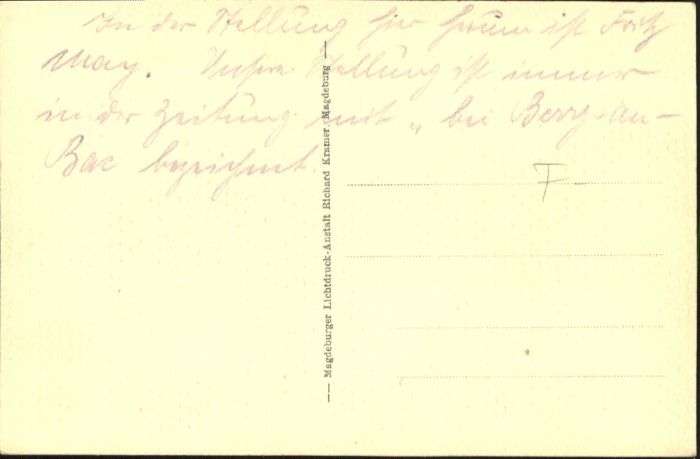 In der Stellung hier herum ist Fritz
May. Unsere Stellung ist immer
in der Zeitung mit „ bei Berry-au-
Bac bezeichnet.
Magdeburger Lichtdruck-Anstalt Richard Kramer, Magdeburg
F